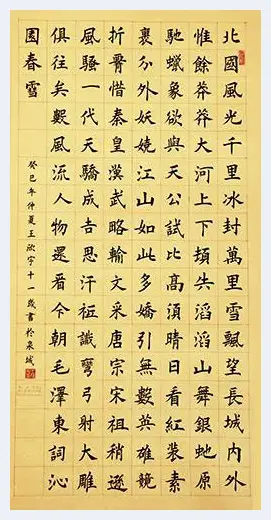 北國風光千里冰封萬里雪飄望長城內外
惟餘莽莽大河上下頓失滔滔山舞銀虵原
馳蠟象欲與天公試比高須晴日看紅裝素
裹分外妖嬈江山如此多嬌引無數英雄競
折惜秦皇漢武略輸文采唐宗宋祖稍遜
風騷一代天驕成吉思汗祗識彎弓射大雕
俱往矣數風流人物還看今朝毛澤東詞沁
園春雪
癸巳年仲夏王欣宇十一歲書於泉城